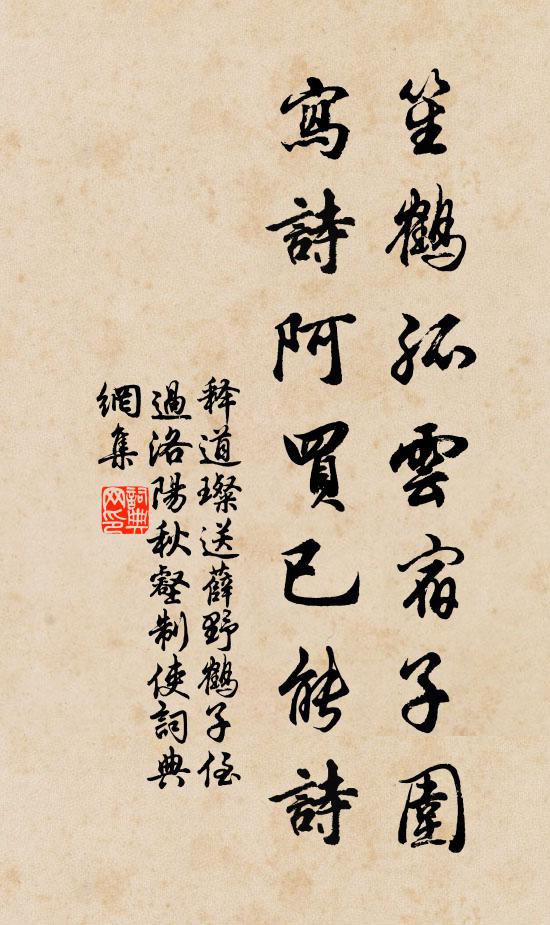 笙鶴孤雲宿子圍
寫詩阿買已能詩
释道璨送薛野鶴子侄
過洛陽秋壑制使詞典
網集
詞典
网印